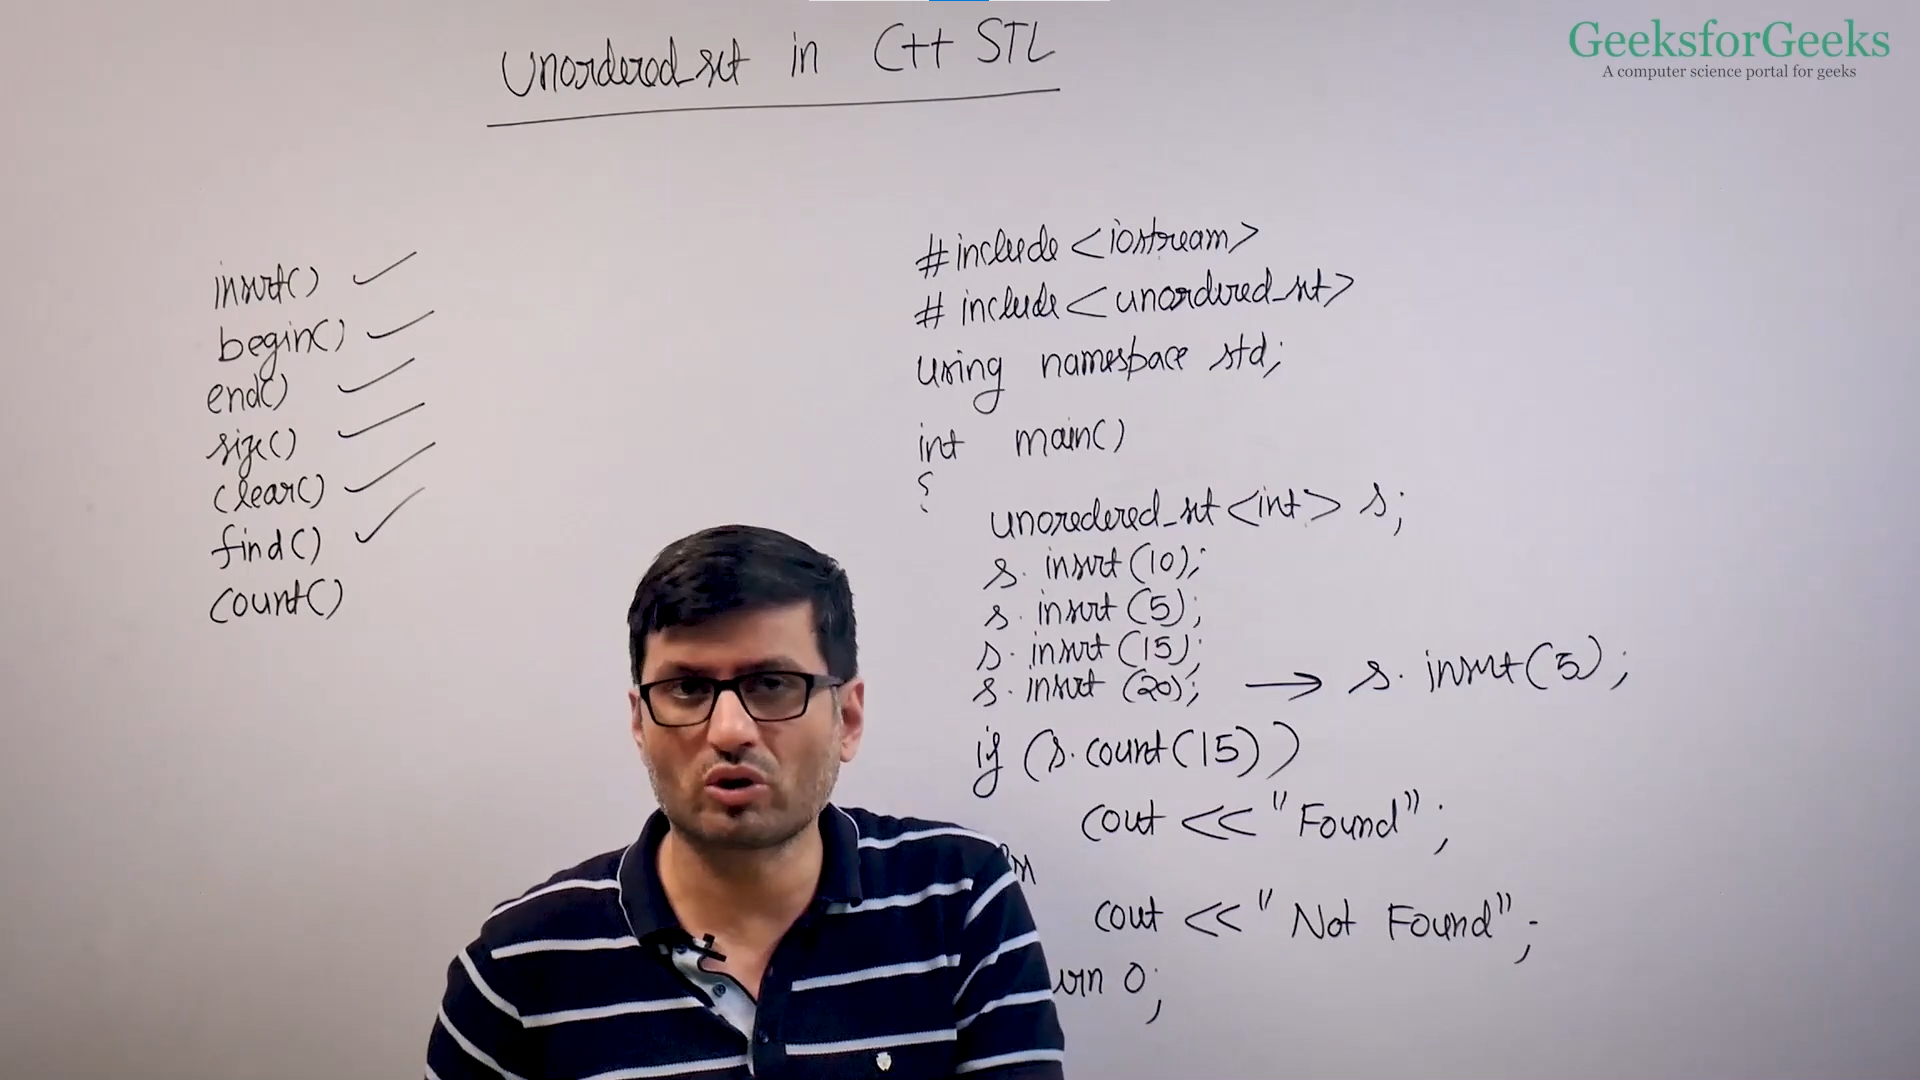 Unordered_set in C++ STL
GeeksforGeeks
A computer science portal for geeks
insert()
begin()
end()
size()
clear()
find()
count()
#include <iostream>
# include <unordered_set>
using namespace std;
int main()
{
unoredered_set <int> s;
s. insert (10);
s. insert (5);
s. insert (15);
s. insert (20); → s. insert (5);
if (s. count (15))
cout << "Found";
cout << "Not Found";
urn 0;